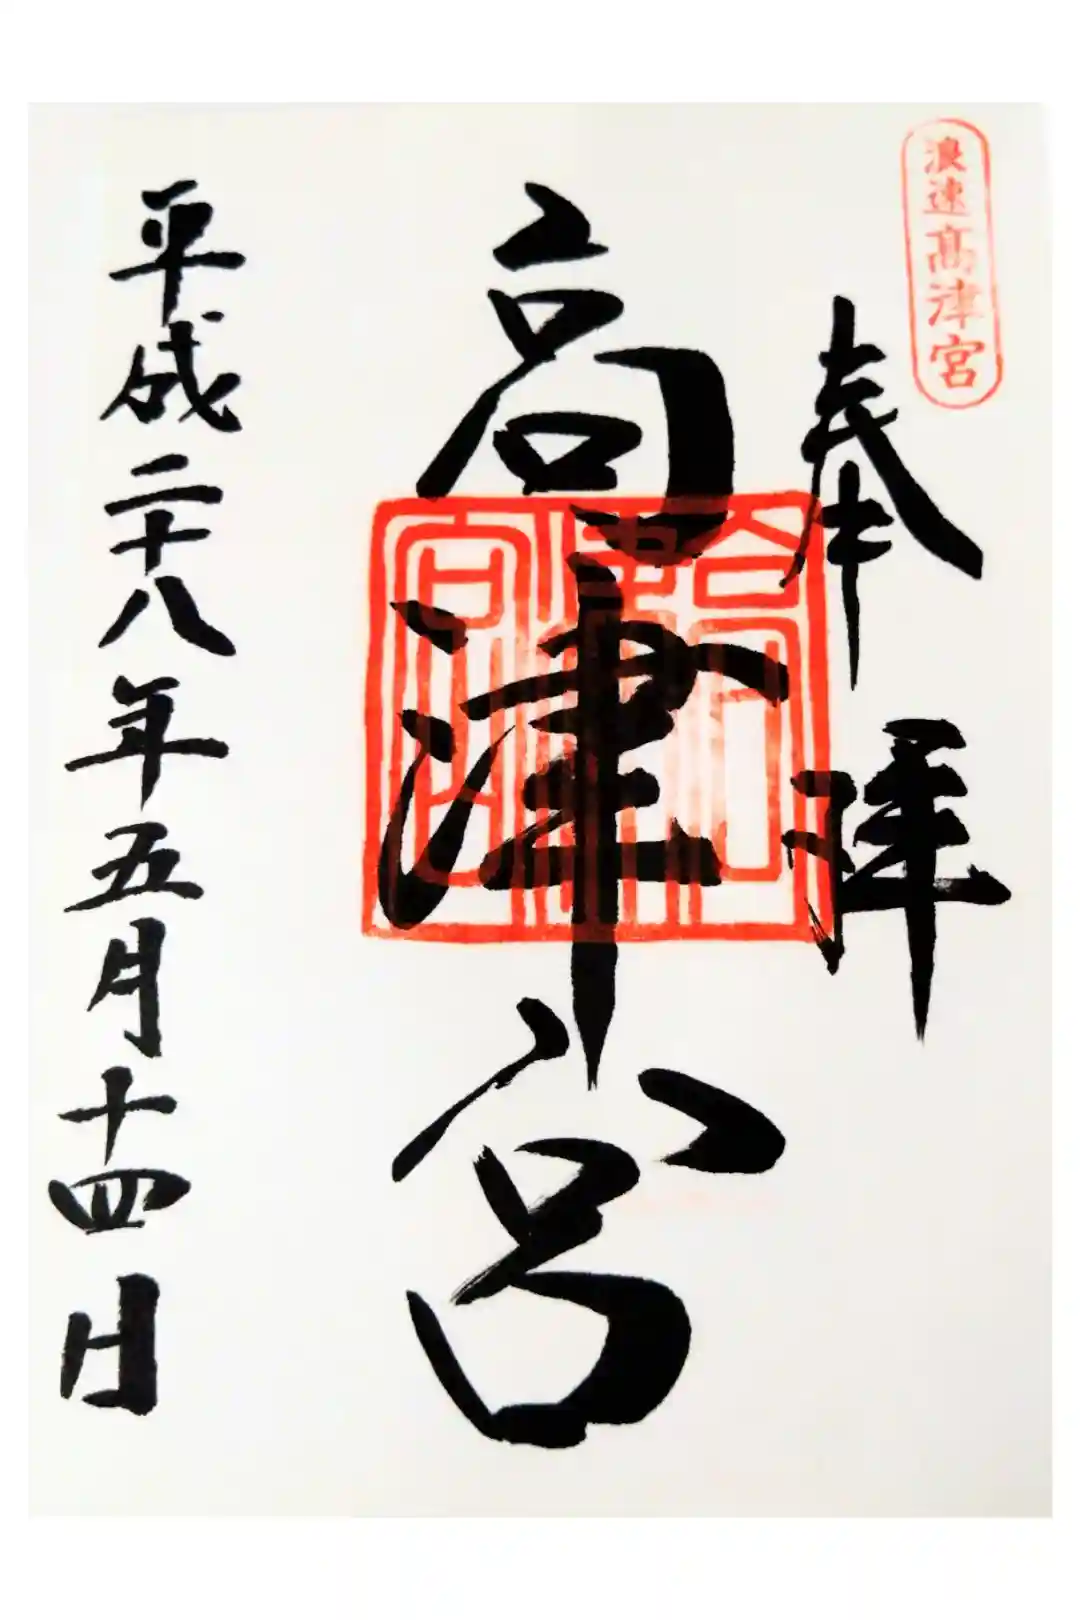 浪速髙津宮
奉拝
高津宮
平成二十八年五月十四日